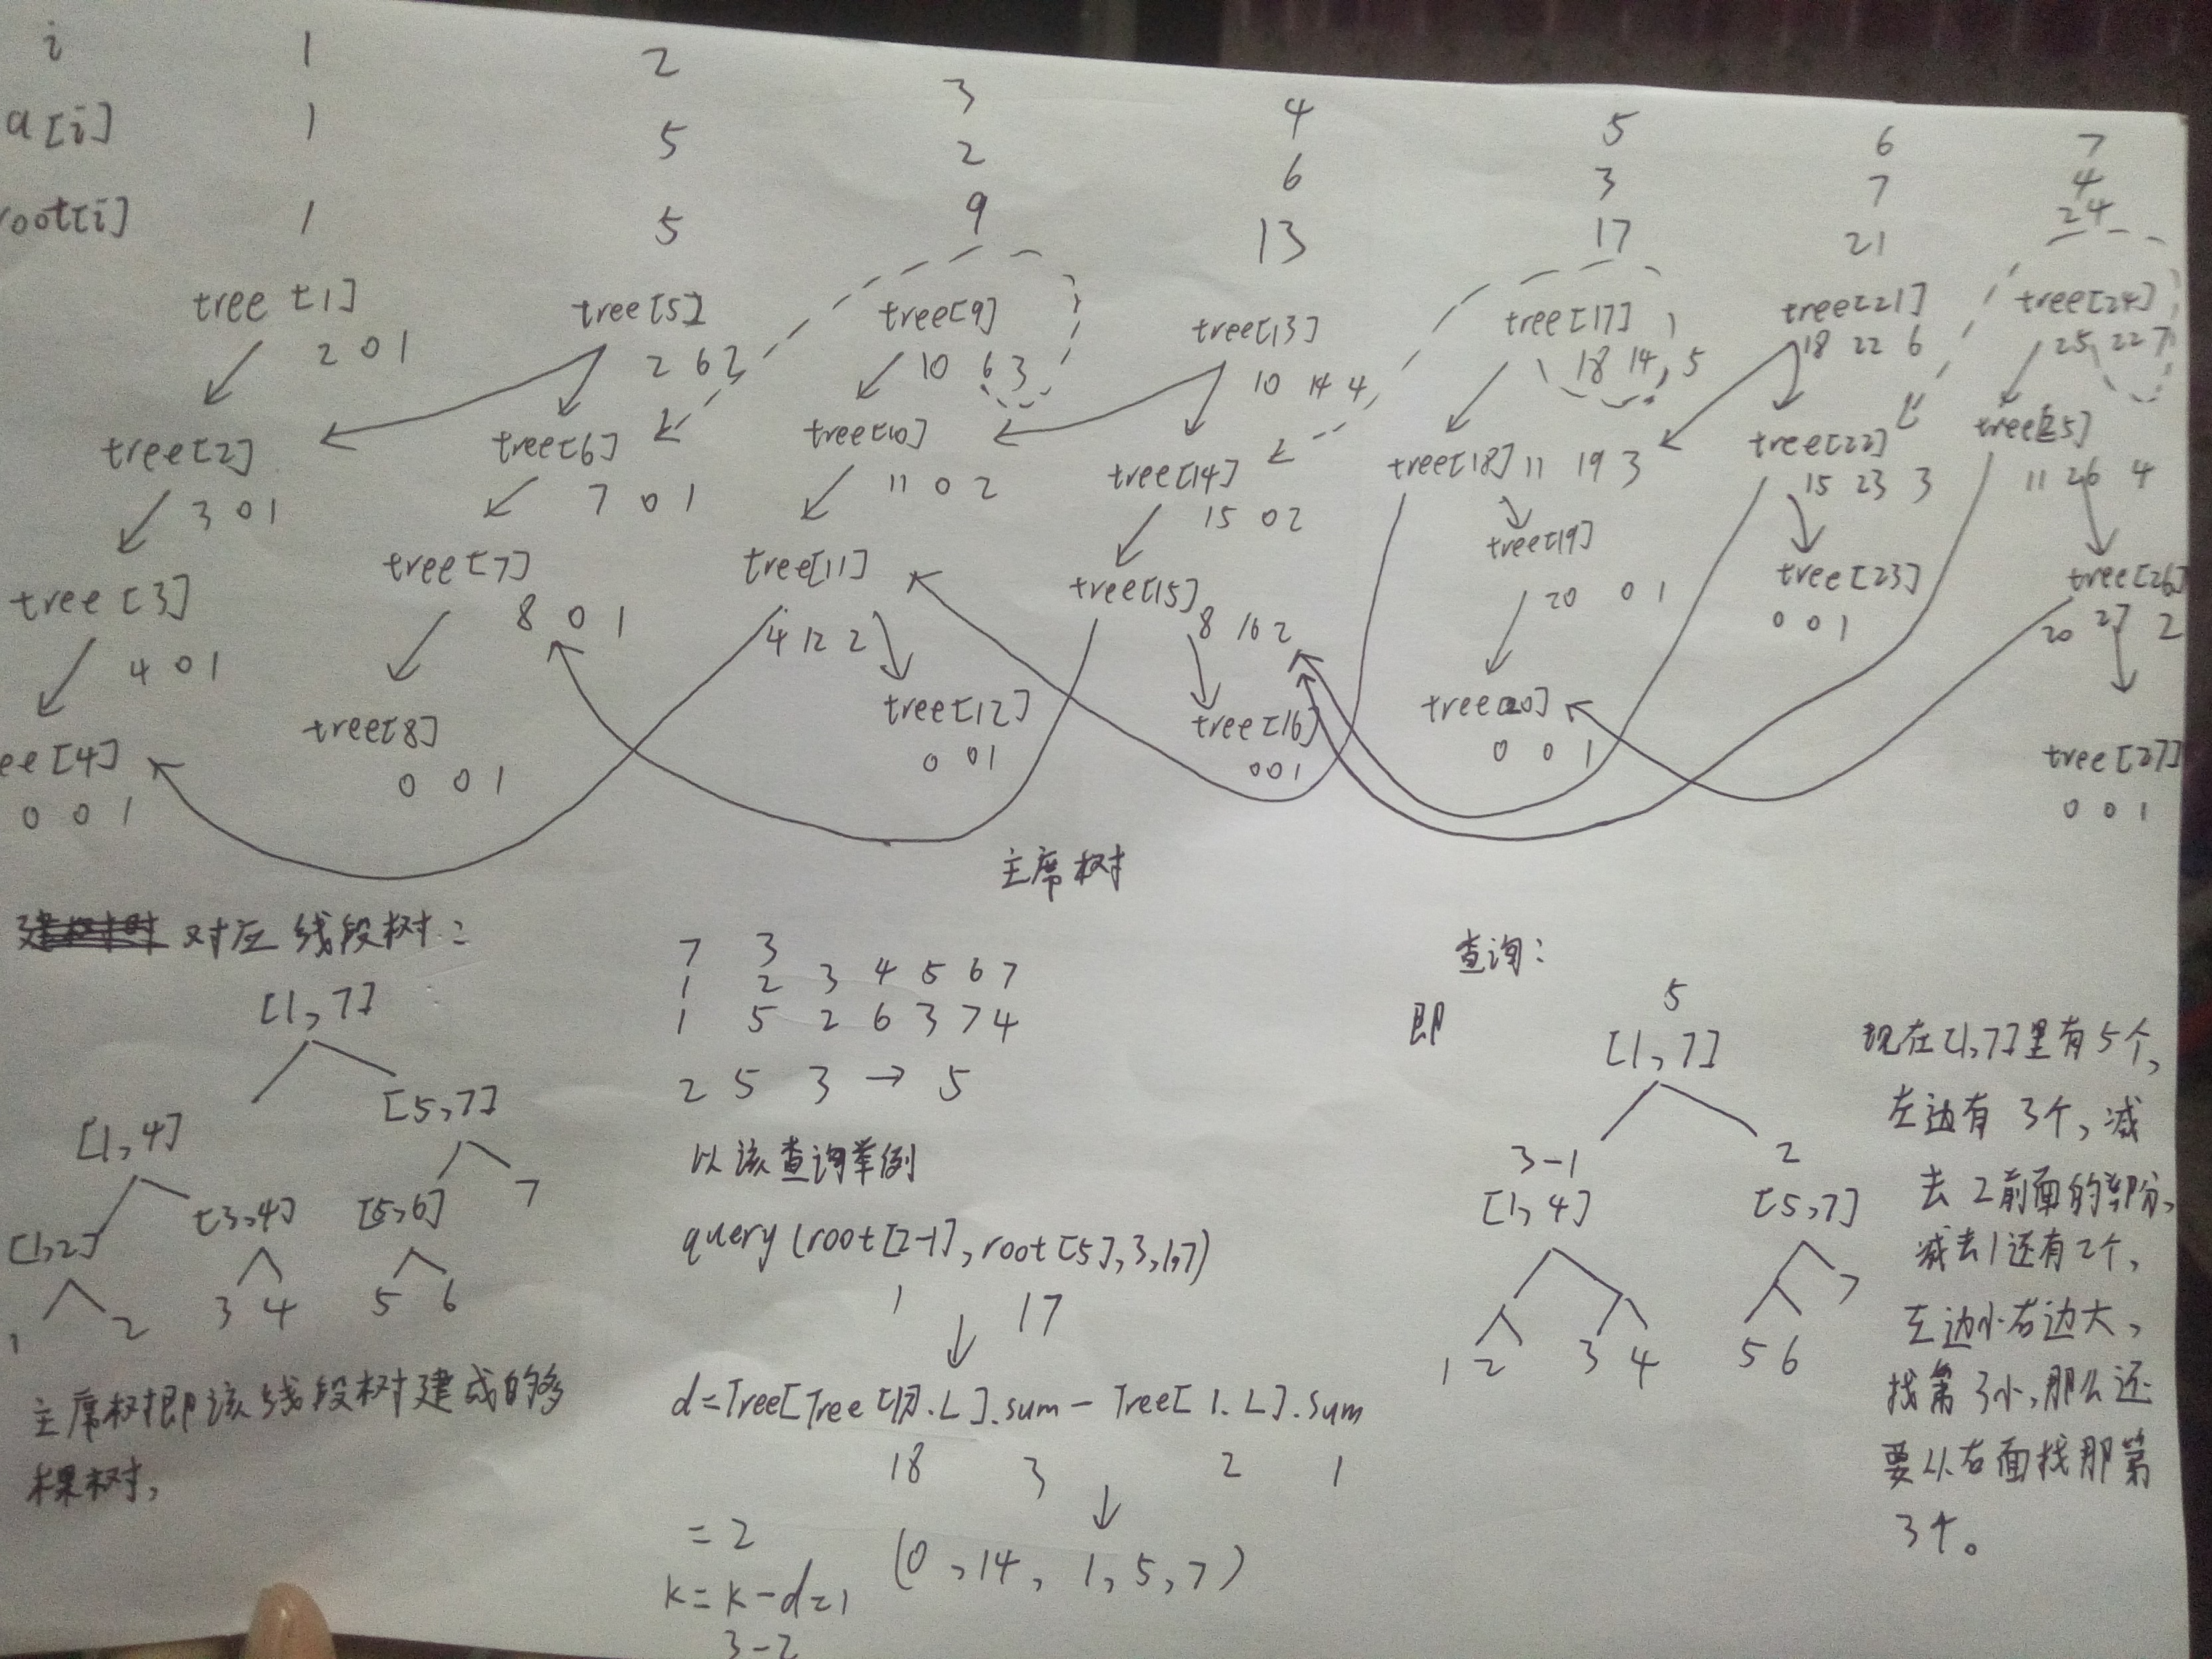 i 1 2 3 4 5 6 7
a[i] 1 5 2 6 3 7 4
root[i] 1 5 9 13 17 21 24
tree[1] tree[5] tree[9] tree[13] tree[17] tree[21] tree[24]
2 0 1 2 6 2 10 6 3 10 14 4 18 14 5 18 22 6 25 22 7
tree[2] tree[6] tree[10] tree[14] tree[18] 11 19 3 tree[22] tree[25]
3 0 1 7 0 1 11 0 2 15 0 2 15 23 3 11 26 4
tree[3] tree[7] tree[11] tree[15] tree[19] tree[23] tree[26]
4 0 1 8 0 1 4 12 2 8 16 2 20 0 1 0 0 1 20 27 2
ee[4] tree[8] tree[12] tree[16] tree[20] tree[27]
0 0 1 0 0 1 0 0 1 0 0 1 0 0 1 0 0 1
主席树
对应线段树:
[1,7]
[1,4] [5,7]
[1,2] [3,4] [5,6] 7
1 2 3 4 5 6
主席树即该线段树建成的多
棵树,
7 3
1 2 3 4 5 6 7
1 5 2 6 3 7 4
2 5 3 → 5
以该查询举例
query(root[2-1],root[5],3,1,7)
1 17
d=Tree[Tree[17].L].sum-Tree[1.L].sum
18 3 2 1
=2
k=k-d=1 (0,14,1,5,7)
3-2
查询:
即 5
[1,7]
3-1 2
[1,4] [5,7]
7
1 2 3 4 5 6
现在[1,7]里有5个,
左边有3个,减
去2前面的部分,
减去1还有2个,
左边小右边大,
找第3小,那么还
要从右面找那第
3个。